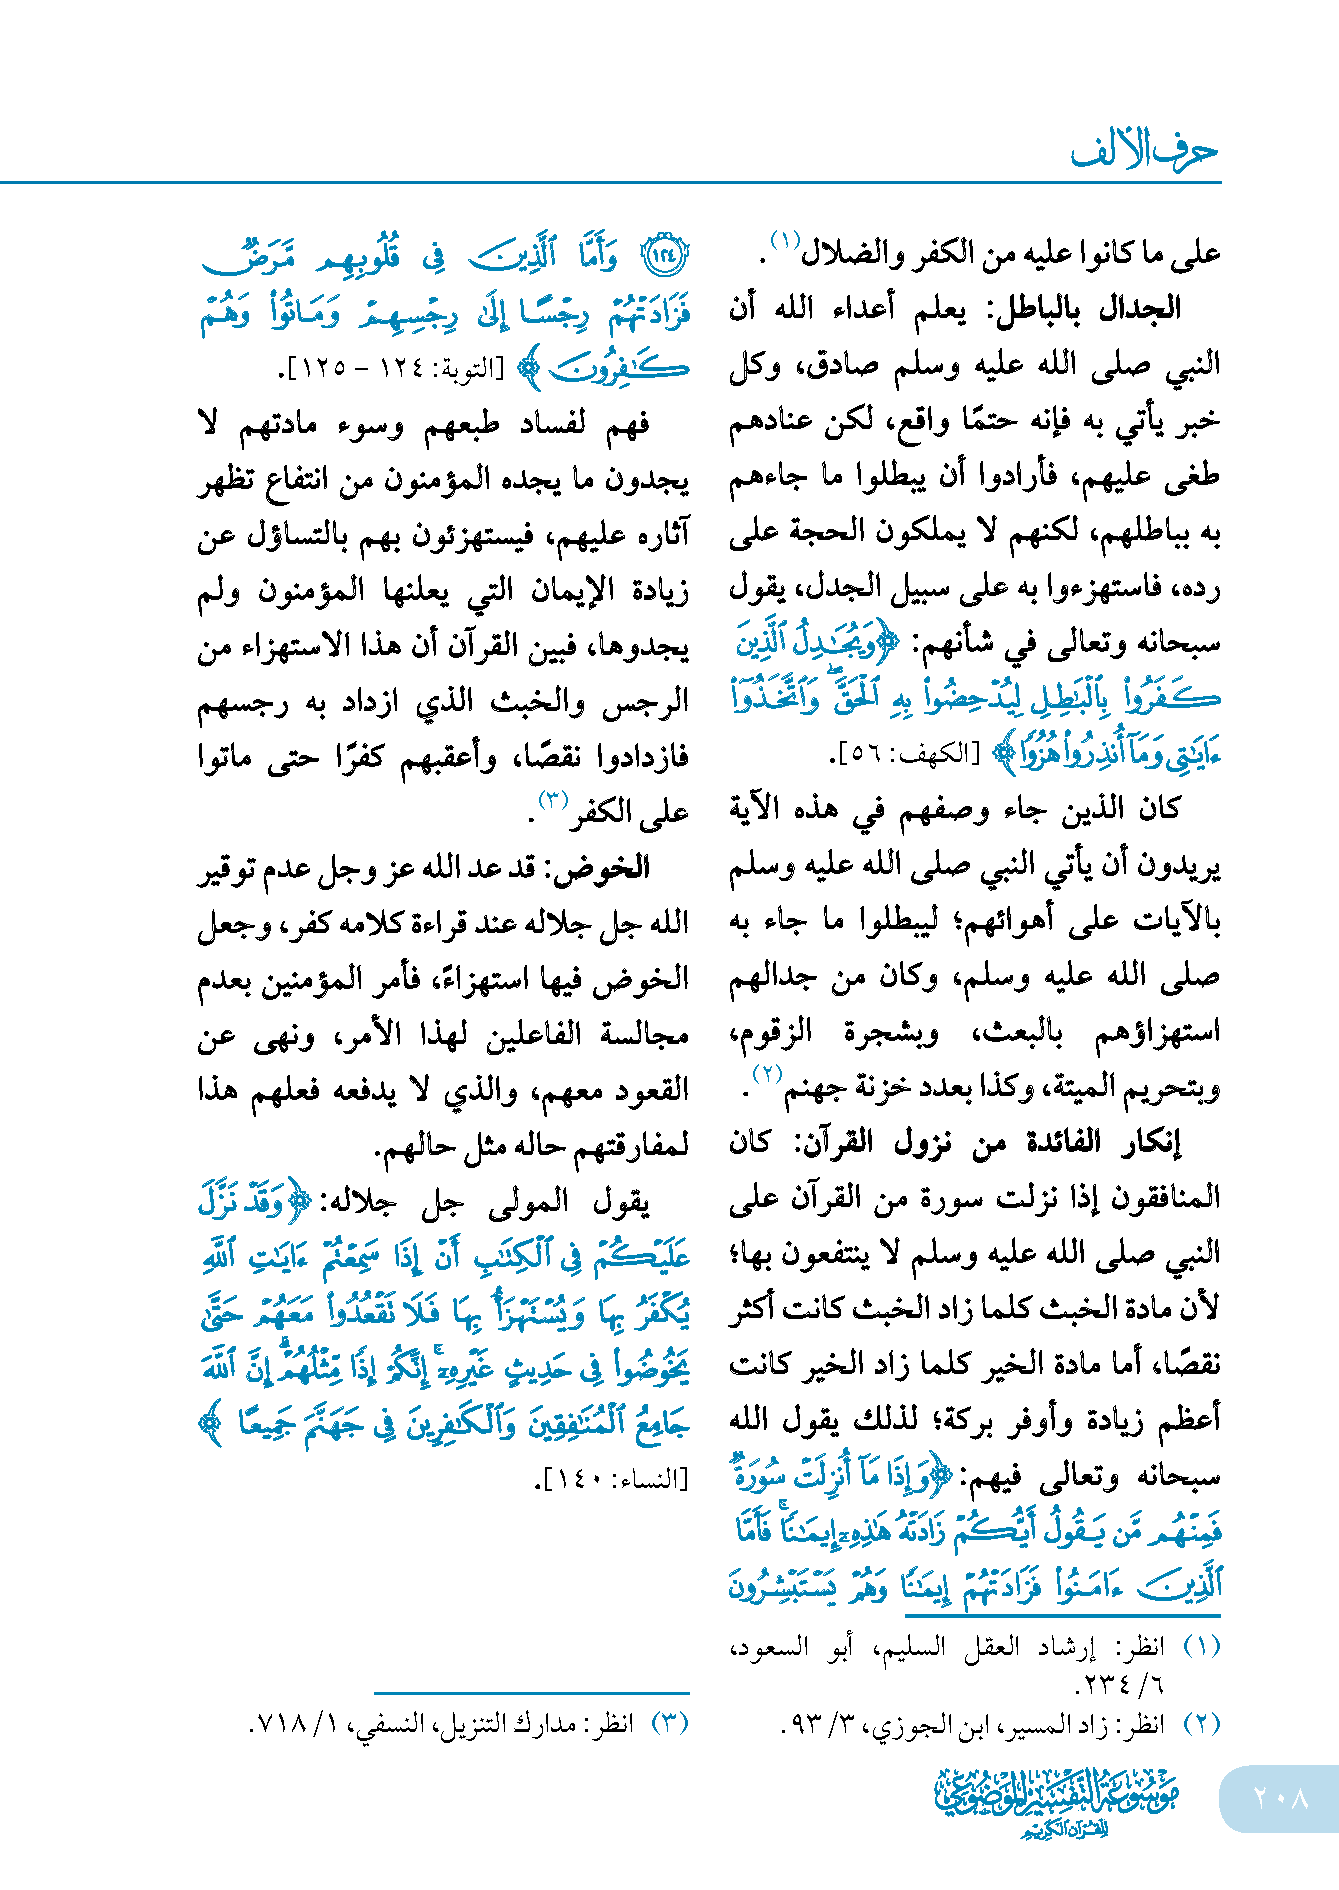 حرف الألف
على ما كانوا عليه من الكفر والضلال(١).
الجدال بالباطل: يعلم أعداء الله أن
النبي صلى الله عليه وسلم صادق، وكل
خبر يأتي به فإنه حتمًا واقع، لكن عنادهم
طغى عليهم، فأرادوا أن يبطلوا ما جاءهم
به بباطلهم، لكنهم لا يملكون الحجة على
رده، فاستهزءوا به على سبيل الجدل، يقول
سبحانه وتعالى في شأنهم: ﴿وَيُجَٰدِلُ ٱلَّذِينَ
كَفَرُواْ بِٱلْبَٰطِلِ لِيُدْحِضُواْ بِهِ ٱلْحَقَّ ۖ وَٱتَّخَذُوٓاْ
ءَايَٰتِى وَمَآ أُنذِرُواْ هُزُوًا﴾ [الكهف: ٥٦].
كان الذين جاء وصفهم في هذه الآية
يريدون أن يأتي النبي صلى الله عليه وسلم
بالآيات على أهوائهم؛ ليبطلوا ما جاء به
صلى الله عليه وسلم، وكان من جدالهم
استهزاؤهم بالبعث، وبشجرة الزقوم،
وبتحريم الميتة، وكذا بعدد خزنة جهنم(٢).
إنكار الفائدة من نزول القرآن: كان
المنافقون إذا نزلت سورة من القرآن على
النبي صلى الله عليه وسلم لا ينتفعون بها؛
لأن مادة الخبث كلما زاد الخبث كانت أكثر
نقصًا، أما مادة الخير كلما زاد الخير كانت
أعظم زيادة وأوفر بركة؛ لذلك يقول الله
سبحانه وتعالى فيهم: ﴿وَإِذَا مَآ أُنزِلَتْ سُورَةٌ
فَمِنْهُم مَّن يَقُولُ أَيُّكُمْ زَادَتْهُ هَٰذِهِۦٓ إِيمَٰنًا ۚ فَأَمَّا
ٱلَّذِينَ ءَامَنُواْ فَزَادَتْهُمْ إِيمَٰنًا وَهُمْ يَسْتَبْشِرُونَ
(١) انظر: إرشاد العقل السليم، أبو السعود،
٦/ ٢٣٤.
(٢) انظر: زاد المسير، ابن الجوزي، ٣/ ٩٣.
١٢٤ وَأَمَّا ٱلَّذِينَ فِى قُلُوبِهِم مَّرَضٌ
فَزَادَتْهُمْ رِجْسًا إِلَىٰ رِجْسِهِمْ وَمَاتُواْ وَهُمْ
كَٰفِرُونَ﴾ [التوبة: ١٢٤ - ١٢٥].
فهم لفساد طبعهم وسوء مادتهم لا
يجدون ما يجده المؤمنون من انتفاع تظهر
آثاره عليهم، فيستهزئون بهم بالتساؤل عن
زيادة الإيمان التي يعلنها المؤمنون ولم
يجدوها، فبين القرآن أن هذا الاستهزاء من
الرجس والخبث الذي ازداد به رجسهم
فازدادوا نقصًا، وأعقبهم كفرًا حتى ماتوا
على الكفر(٣).
الخوض: قد عد الله عز وجل عدم توقير
الله جل جلاله عند قراءة كلامه كفر، وجعل
الخوض فيها استهزاءً، فأمر المؤمنين بعدم
مجالسة الفاعلين لهذا الأمر، ونهى عن
القعود معهم، والذي لا يدفعه فعلهم هذا
لمفارقتهم حاله مثل حالهم.
يقول المولى جل جلاله: ﴿وَقَدْ نَزَّلَ
عَلَيْكُمْ فِى ٱلْكِتَٰبِ أَنْ إِذَا سَمِعْتُمْ ءَايَٰتِ ٱللَّهِ
يُكْفَرُ بِهَا وَيُسْتَهْزَأُ بِهَا فَلَا تَقْعُدُواْ مَعَهُمْ حَتَّىٰ
يَخُوضُواْ فِى حَدِيثٍ غَيْرِهِۦٓ ۚ إِنَّكُمْ إِذًا مِّثْلُهُمْ ۗ إِنَّ ٱللَّهَ
جَامِعُ ٱلْمُنَٰفِقِينَ وَٱلْكَٰفِرِينَ فِى جَهَنَّمَ جَمِيعًا﴾
[النساء: ١٤٠].
(٣) انظر: مدارك التنزيل، النسفي، ١/ ٧١٨.
موسوعة التفسير الموضوعي
للقرآن الكريم
٢٠٨